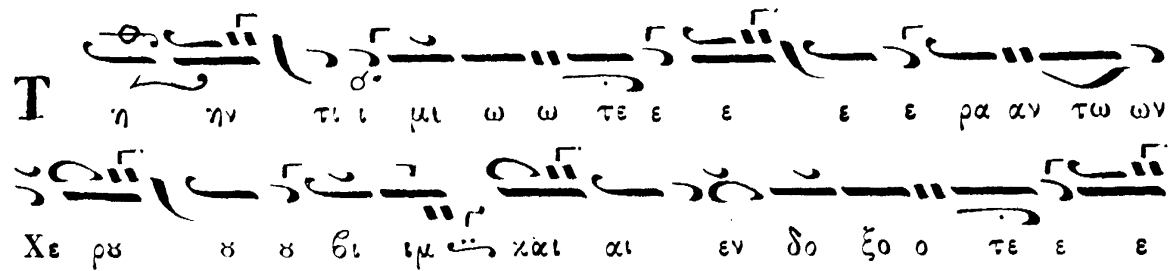 Τ η ην τι ι μι ω ω τε ε ε ε ε ρα αν τω ων
Χε ρȣ ȣ ȣ βι ιμ και αι εν δο ξο ο τε ε ε